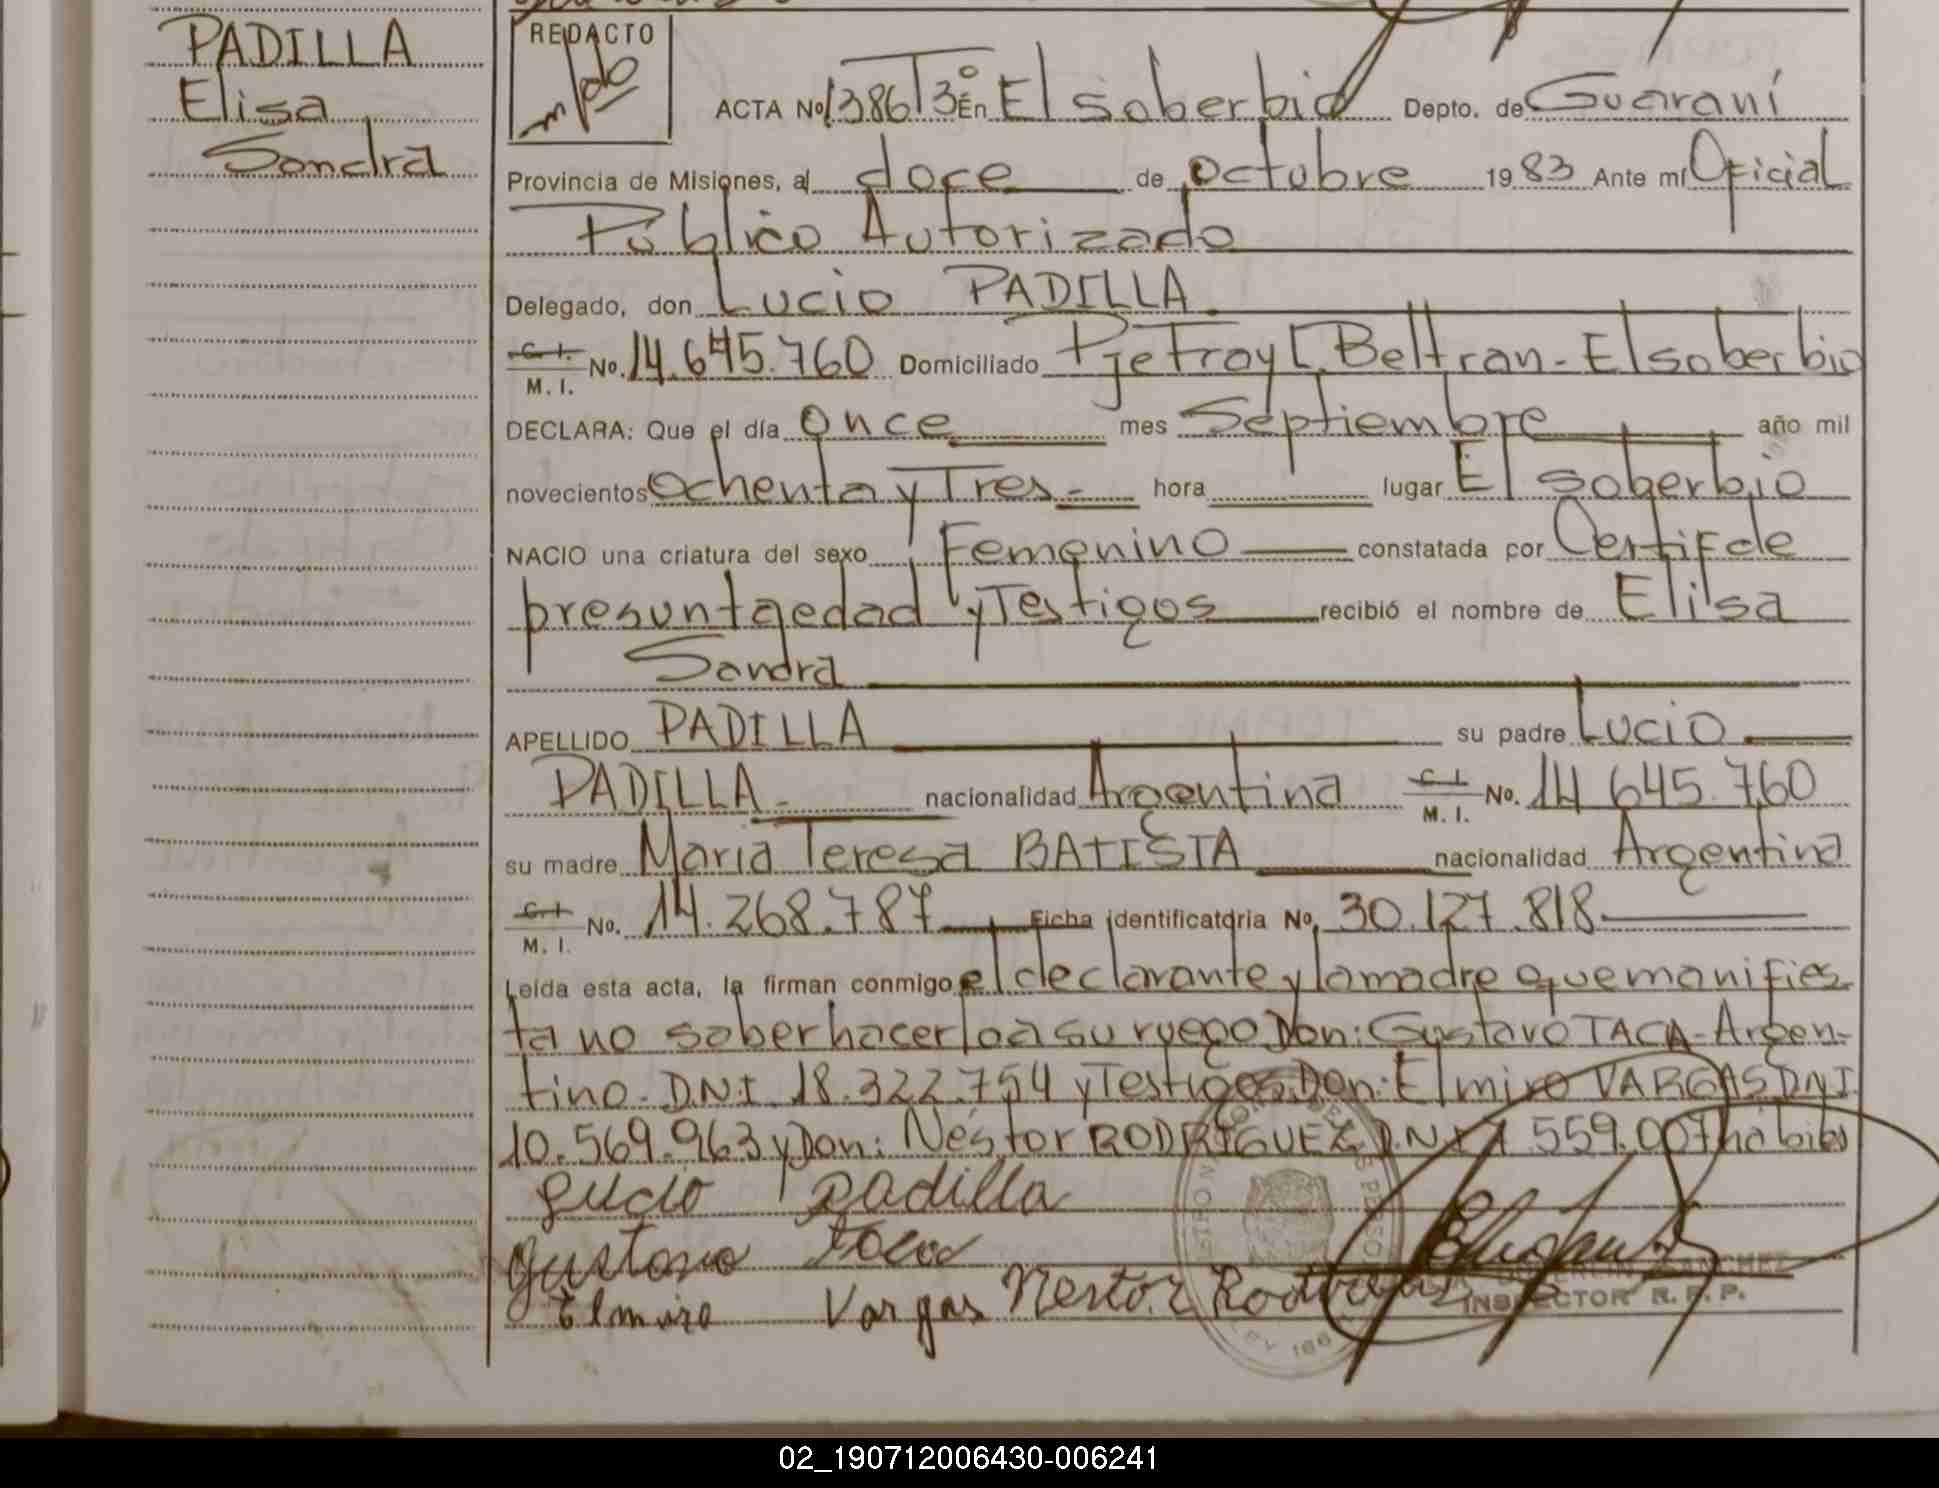 PADILLA
Elisa
Sandra
REDACTO
ACTA No 1386 T3º En El soberbio Depto. de Guaraní
Provincia de Misiones, al doce de octubre 1983 Ante mí Oficial
Público Autorizado
Delegado, don Lucio PADILLA
C. I. M. I. No. 14.645.760 Domiciliado Pje Fray L. Beltran - El soberbio
DECLARA: Que el día once mes Septiembre año mil
novecientos ochenta y Tres - hora lugar El soberbio
NACIO una criatura del sexo Femenino constatada por Certif de
presunta edad y Testigos recibió el nombre de Elisa
Sandra
APELLIDO PADILLA su padre Lucio
PADILLA - nacionalidad Argentina C. I. M. I. No. 14 645.760
su madre María Teresa BATISTA nacionalidad Argentina
C. I. M. I. No. 14.268.787 Ficha identificatoria No. 30.127.818
Leída esta acta, la firman conmigo el declarante y la madre que manifies
ta no saber hacerlo a su ruego Don: Gustavo TACA - Argen-
tino - D.N.I. 18.322.754 y Testigos Don: Elmiro VARGAS D.N.I
10.569.963 y Don: Néstor RODRIGUEZ D.N.I 559.007 habiles
Lucio padilla
gustavo taca
Elmiro Vargas Nestor Rodriguez
INSPECTOR R. P. P.
02_190712006430-006241